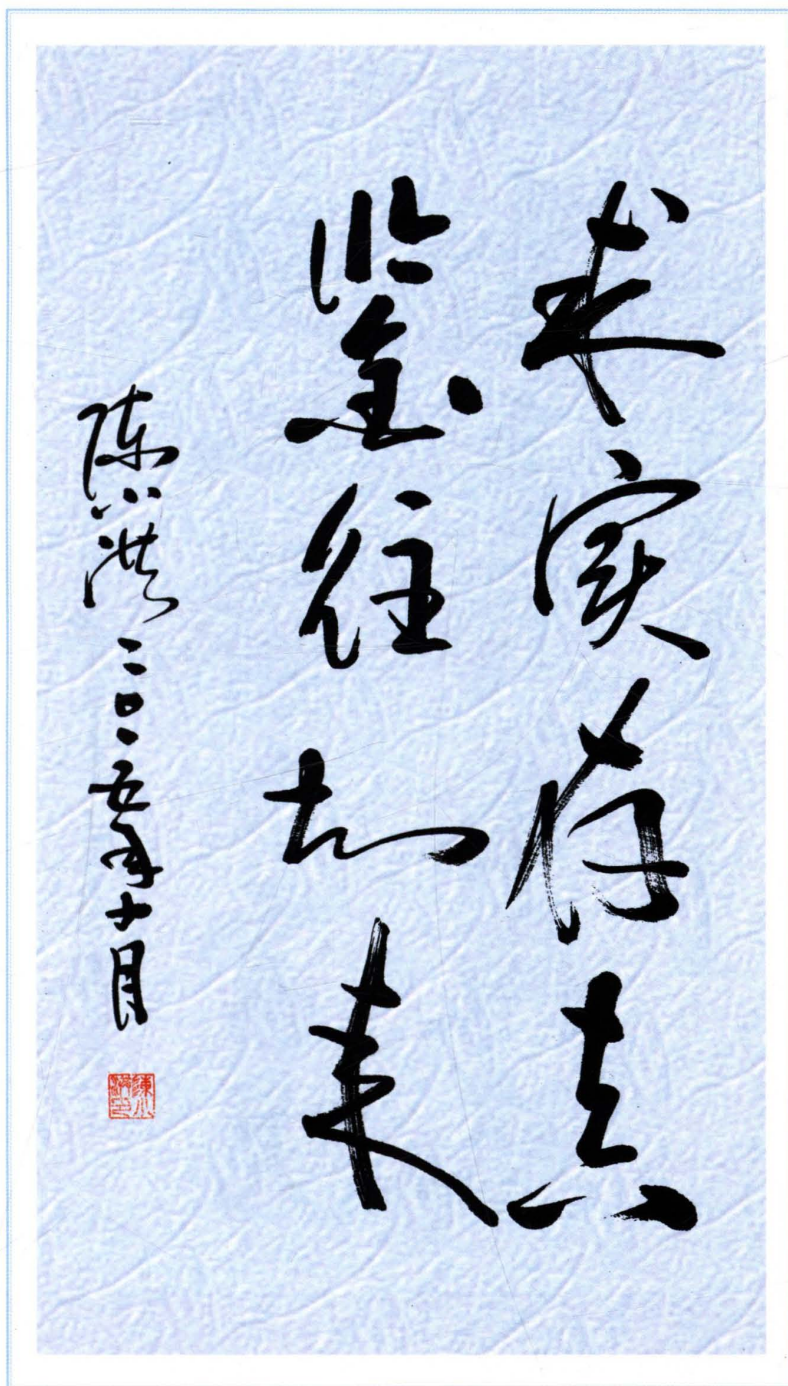 求实存真
鉴往知来
陈小洪 二〇一五年十月
陈小洪印